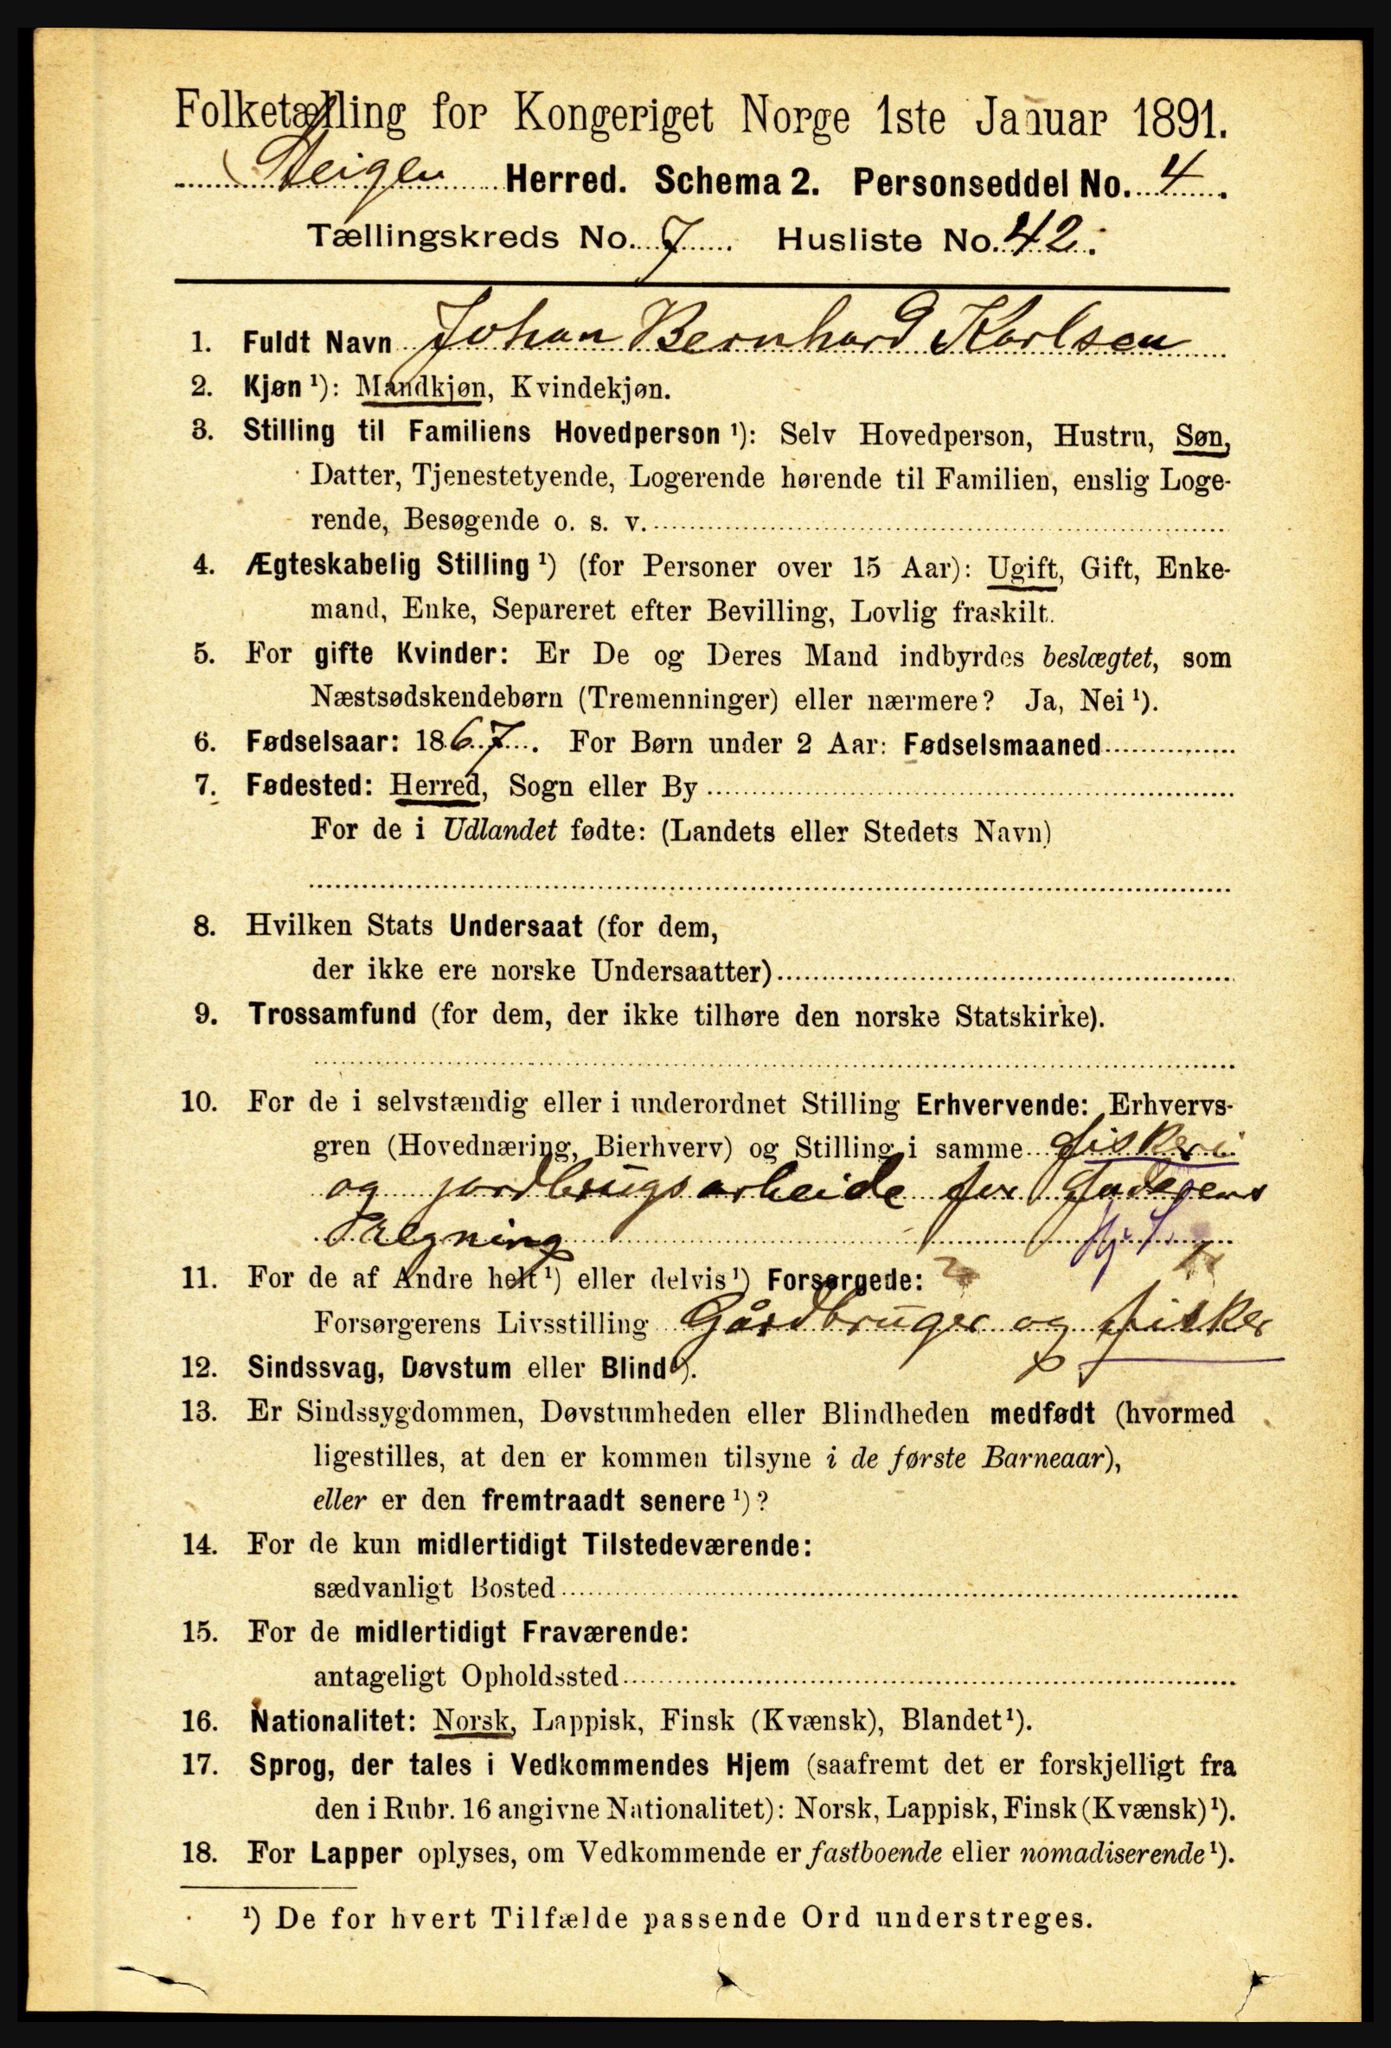 Folketælling for Kongeriget Norge 1ste Januar 1891.
Steigen Herred. Schema 2. Personseddel No. 4.
Tællingskreds No. 7. Husliste No. 42.
1. Fuldt Navn Johan Bernhard Karlsen
2. Kjøn ¹): Mandkjøn, Kvindekjøn.
3. Stilling til Familiens Hovedperson ¹): Selv Hovedperson, Hustru, Søn,
Datter, Tjenestetyende, Logerende hørende til Familien, enslig Loge-
rende, Besøgende o. s. v.
4. Ægteskabelig Stilling ¹) (for Personer over 15 Aar): Ugift, Gift, Enke-
mand, Enke, Separeret efter Bevilling, Lovlig fraskilt.
5. For gifte Kvinder: Er De og Deres Mand indbyrdes beslægtet, som
Næstsødskendebørn (Tremenninger) eller nærmere? Ja, Nei ¹).
6. Fødselsaar: 1867. For Børn under 2 Aar: Fødselsmaaned
7. Fødested: Herred, Sogn eller By
For de i Udlandet fødte: (Landets eller Stedets Navn)
8. Hvilken Stats Undersaat (for dem,
der ikke ere norske Undersaatter)
9. Trossamfund (for dem, der ikke tilhøre den norske Statskirke).
10. For de i selvstændig eller i underordnet Stilling Erhvervende: Erhvervs-
gren (Hovednæring, Bierhverv) og Stilling i samme fiskeri
og jordbrugsarbeide for Faderens
Regning
11. For de af Andre helt ¹) eller delvis ¹) Forsørgede:
Forsørgerens Livsstilling Gårdbruger og fisker
12. Sindssvag, Døvstum eller Blind ¹).
13. Er Sindssygdommen, Døvstumheden eller Blindheden medfødt (hvormed
ligestilles, at den er kommen tilsyne i de første Barneaar),
eller er den fremtraadt senere ¹)?
14. For de kun midlertidigt Tilstedeværende:
sædvanligt Bosted
15. For de midlertidigt Fraværende:
antageligt Opholdssted
16. Nationalitet: Norsk, Lappisk, Finsk (Kvænsk), Blandet ¹).
17. Sprog, der tales i Vedkommendes Hjem (saafremt det er forskjelligt fra
den i Rubr. 16 angivne Nationalitet): Norsk, Lappisk, Finsk (Kvænsk) ¹).
18. For Lapper oplyses, om Vedkommende er fastboende eller nomadiserende ¹).
¹) De for hvert Tilfælde passende Ord understreges.